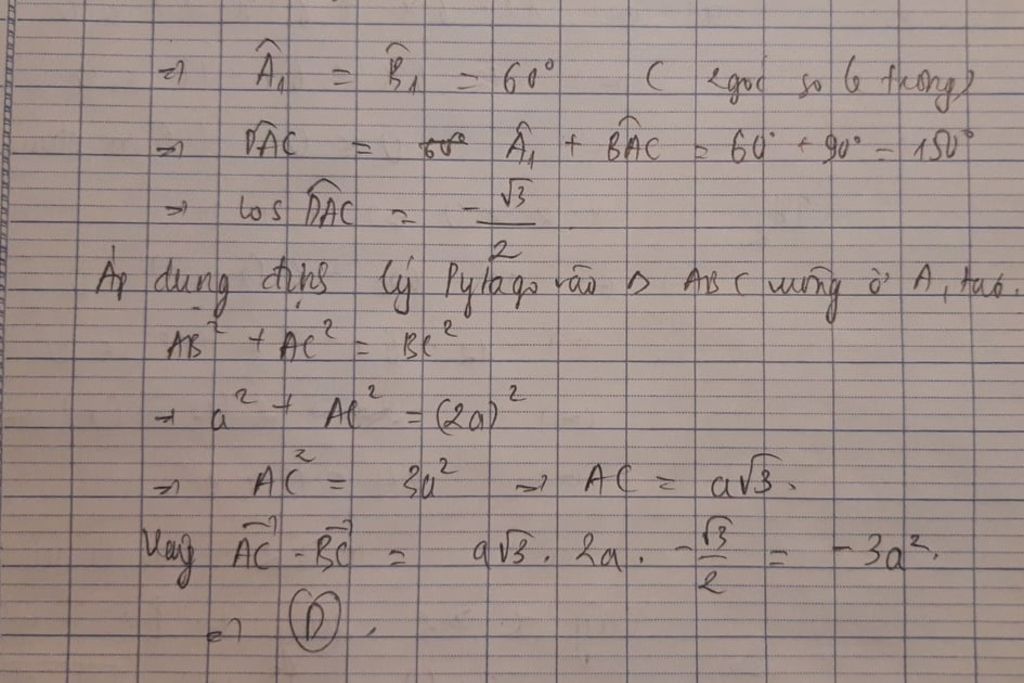 ⇒ Â₁ = B̂₁ = 60° ( 2 góc so le trong)
⇒ D̂AC = Â₁ + B̂AC = 60° + 90° = 150°
⇒ cos D̂AC = -√3/2
Áp dụng định lý Pytago vào Δ ABC vuông ở A, ta có.
AB² + AC² = BC²
→ a² + AC² = (2a)²
⇒ AC² = 3a² → AC = a√3.
Vậy AC⃗ . BC⃗ = a√3 . 2a . -√3/2 = -3a².
⇒ D .